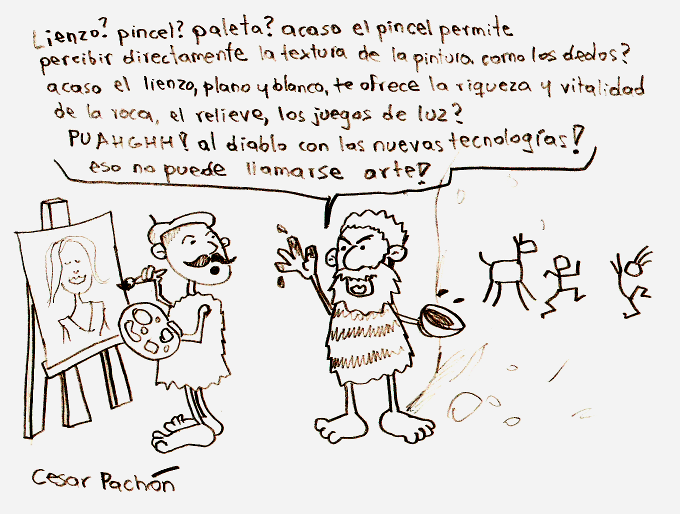 Lienzo? pincel? paleta? acaso el pincel permite
percibir directamente la textura de la pintura como los dedos?
acaso el lienzo, plano y blanco, te ofrece la riqueza y vitalidad
de la roca, el relieve, los juegos de luz?
PUAHGHH! al diablo con las nuevas tecnologías!
eso no puede llamarse arte!
Cesar Pachón